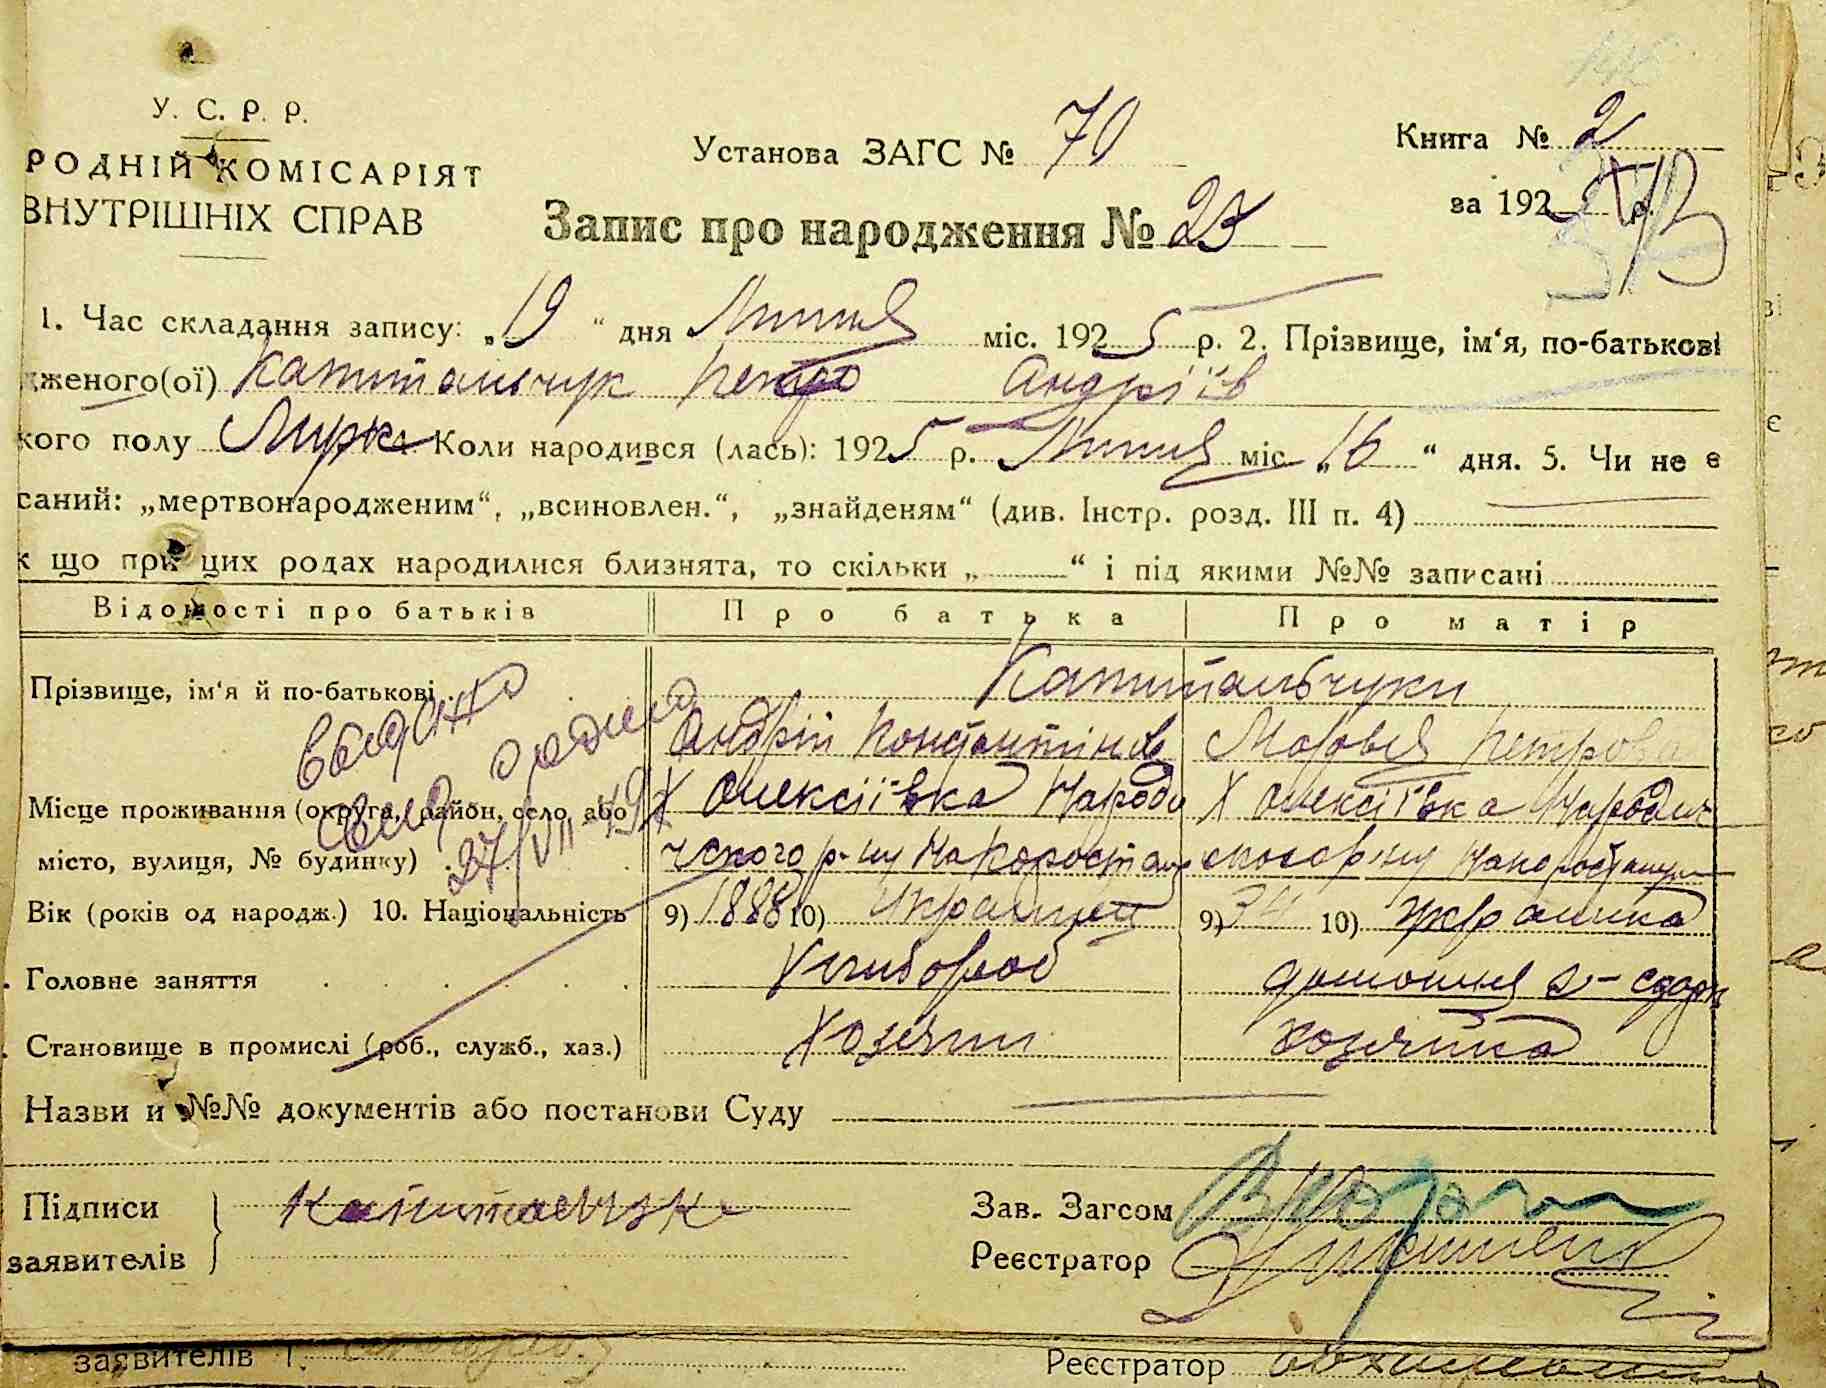 У. С. Р. Р.
РОДНІЙ КОМІСАРІЯТ
ВНУТРІШНІХ СПРАВ
Установа ЗАГС № 70
Книга № 2
за 192 р.
Запис про народження № 23
1. Час складання запису: „19“ дня Липня міс. 1925 р. 2. Прізвище, ім‘я, по-батькові
дженого(ої) Капитанчук Петро Андріїв
кого полу Коли народився (лась): 1925 р. Липня міс. „16“ дня. 5. Чи не є
саний: „мертвонародженим“, „всиновлен.“, „знайденям“ (див. Інстр. розд. III п. 4)
к що при цих родах народилися близнята, то скільки „ “ і під якими №№ записані
Відомості про батьків Про батька Про матір
Прізвище, ім‘я й по-батькові Капитанчуки
Андрій Константінов Марья Петрова
Місце проживання (округа, район, село або Х Олексіївка Народи Х Олексіївка Народич
місто, вулиця, № будинку) ческого р-ну
видано
27/VII
Вік (років од народж.) 10. Національність 9) 1888 10) Украінец 9) 34 10) Украинка
Головне заняття Хлибороб
Становище в промислі (роб., служб., хаз.) Хозяин хозяйка
Назви и №№ документів або постанови Суду
Підписи
заявителів
Капитанчук
Зав. Загсом
Реєстратор
заявителів
Реєстратор